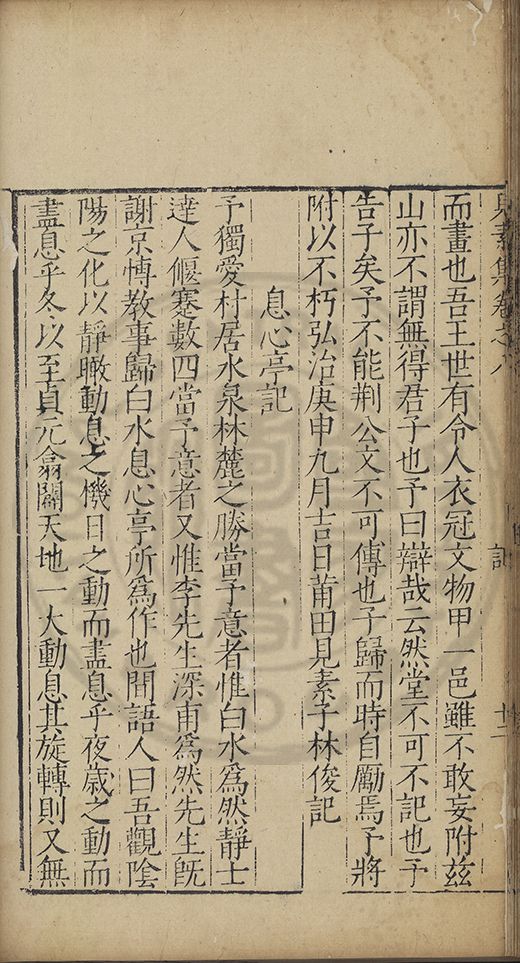 見素集卷之八
記
十二
而畫也吾王世有令人衣冠文物甲一邑雖不敢妄附兹
山亦不謂無得君子也予曰辯哉云然堂不可不記也予
告子矣予不能荆公文不可傳也子歸而時自勵焉予將
附以不朽弘治庚申九月吉日莆田見素子林俊記
息心亭記
予獨愛村居水泉林麓之勝當予意者惟白水爲然靜士
達人偃蹇數四當予意者又惟李先生深甫爲然先生旣
謝京愽教事歸白水息心亭所爲作也間語人曰吾觀陰
陽之化以靜瞰動息之機日之動而盡息乎夜歲之動而
盡息乎冬以至貞元翕闢天地一大動息其旋轉則又無